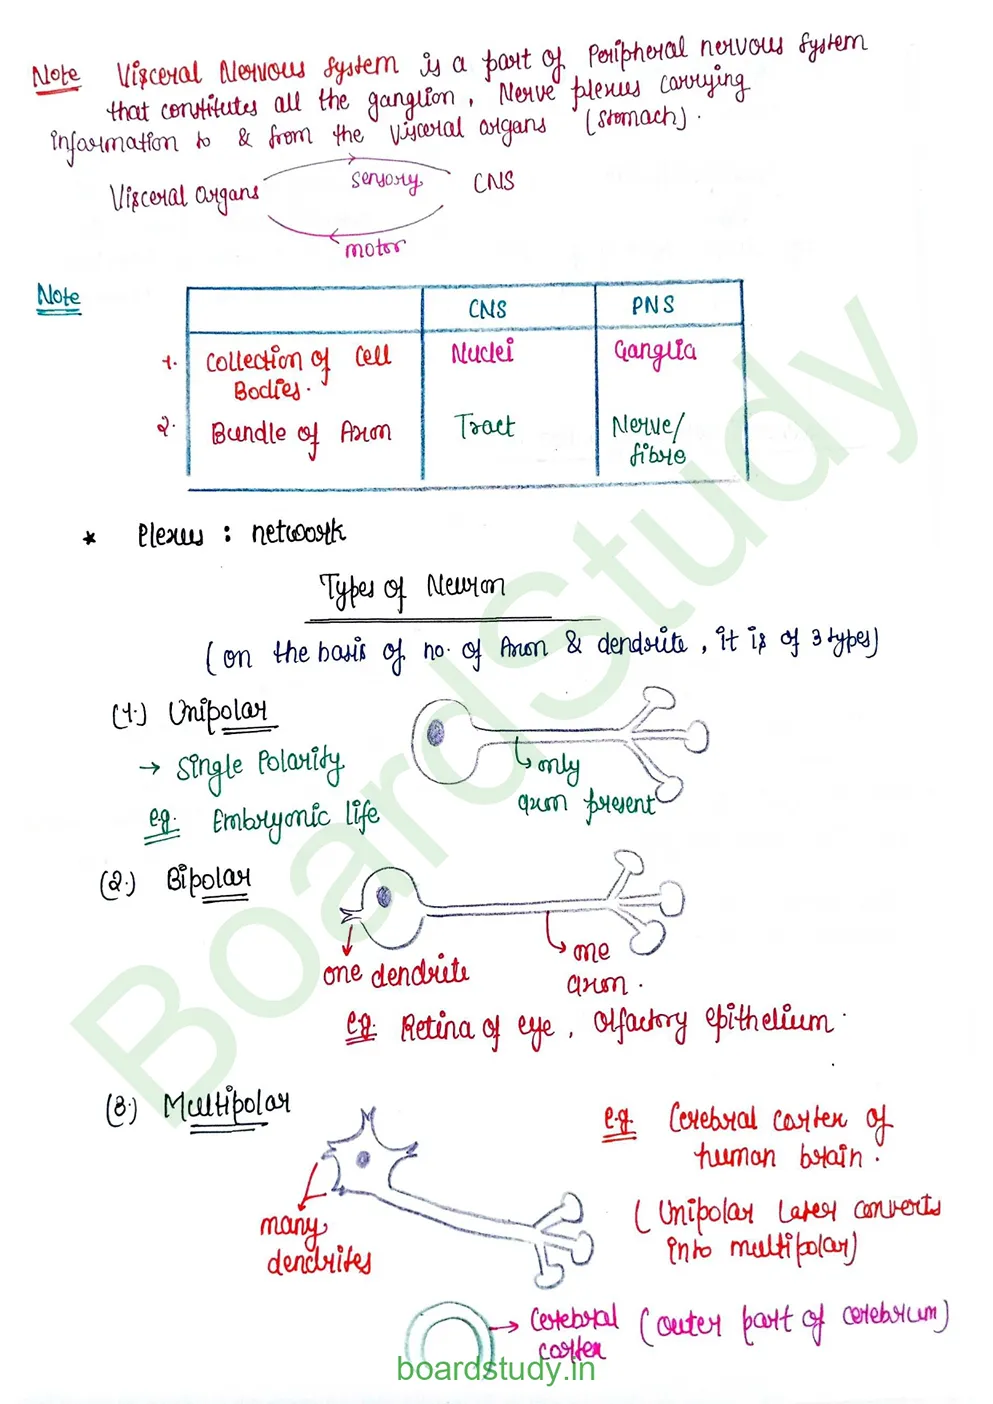 Note Visceral Nervous System is a part of Peripheral nervous System
that constitutes all the ganglion, Nerve plexus carrying
information to & from the visceral organs (stomach).
Visceral organs sensory CNS
motor
Note
CNS PNS
1. Collection of Cell Nuclei Ganglia
Bodies.
2. Bundle of Axon Tract Nerve/
fibre
* Plexus : network
Types of Neuron
(on the basis of no. of Axon & dendrite, it is of 3 types)
(1.) Unipolar
→ Single Polarity
only
axon present
e.g. Embryonic life
(2.) Bipolar
one dendrite
one
axon.
e.g. Retina of eye, Olfactory epithelium.
(3.) Multipolar
e.g. Cerebral cortex of
human brain.
many
dendrites
(Unipolar Later converts
into multipolar)
→ Cerebral (outer part of cerebrum)
cortex
boardstudy.in
BoardStudy